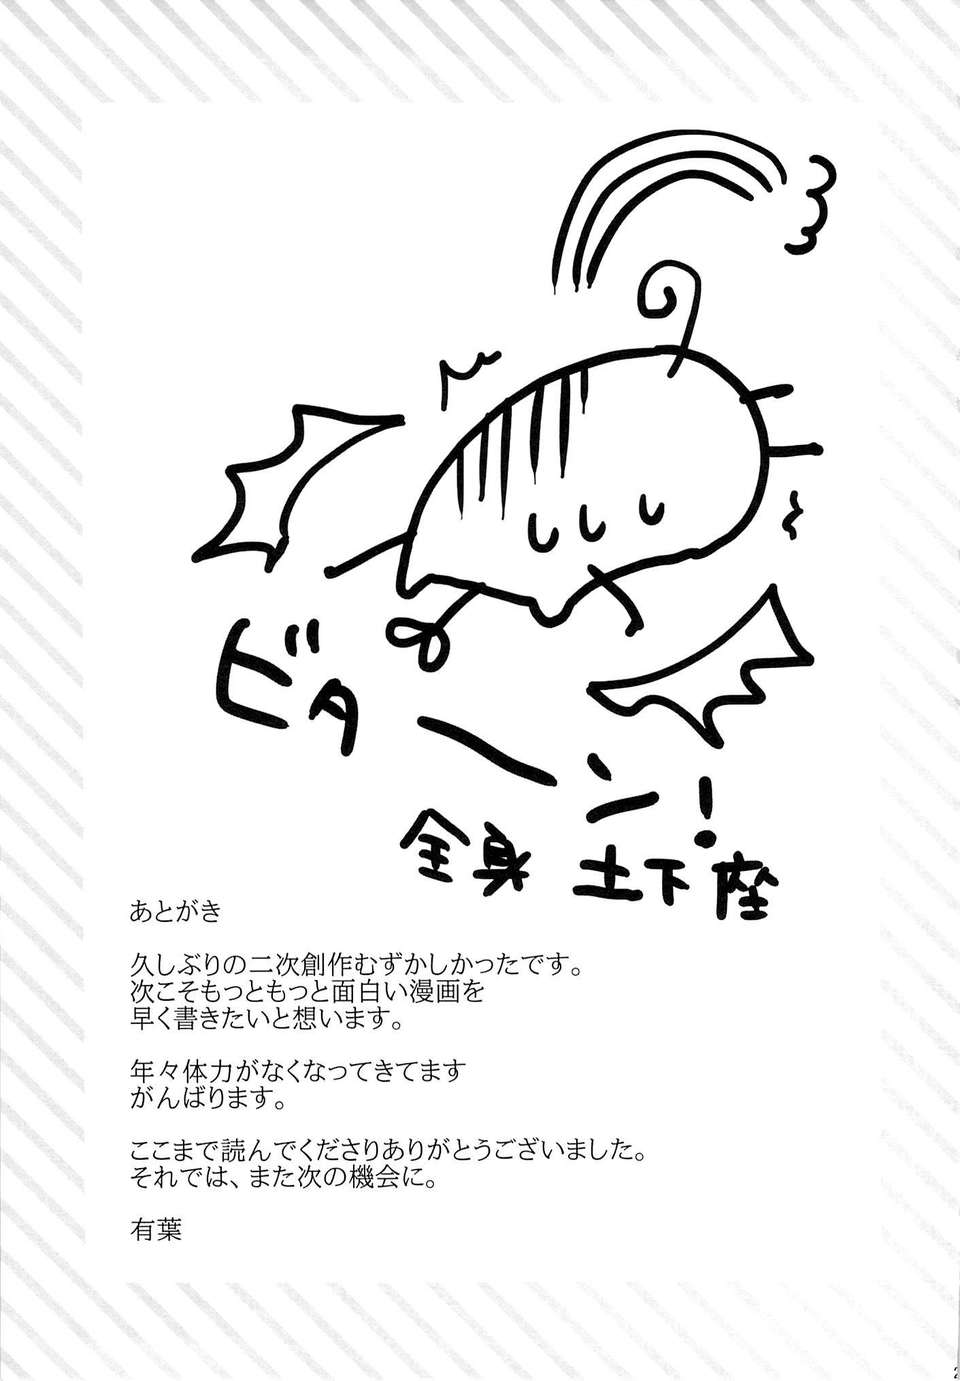 ビターン!
全身 土下座
あとがき
久しぶりの二次創作むずかしかったです。
次こそもっともっと面白い漫画を
早く書きたいと想います。
年々体力がなくなってきてます
がんばります。
ここまで読んでくださりありがとうございました。
それでは、また次の機会に。
有葉